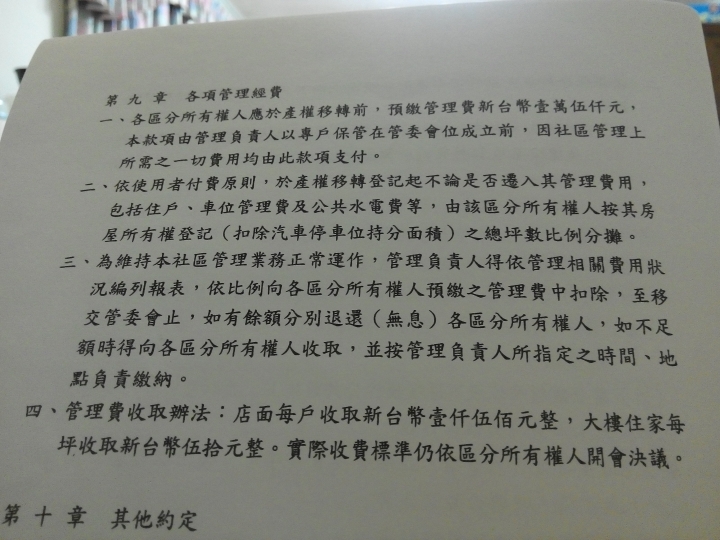 第九章　各項管理經費
一、各區分所有權人應於產權移轉前，預繳管理費新台幣壹萬伍仟元，
本款項由管理負責人以專戶保管在管委會位成立前，因社區管理上
所需之一切費用均由此款項支付。
二、依使用者付費原則，於產權移轉登記起不論是否遷入其管理費用，
包括住戶、車位管理費及公共水電費等，由該區分所有權人按其房
屋所有權登記（扣除汽車停車位持分面積）之總坪數比例分攤。
三、為維持本社區管理業務正常運作，管理負責人得依管理相關費用狀
況編列報表，依比例向各區分所有權人預繳之管理費中扣除，至移
交管委會止，如有餘額分別退還（無息）各區分所有權人，如不足
額時得向各區分所有權人收取，並按管理負責人所指定之時間、地
點負責繳納。
四、管理費收取辦法：店面每戶收取新台幣壹仟伍佰元整，大樓住家每
坪收取新台幣伍拾元整。實際收費標準仍依區分所有權人開會決議。
第十章　其他約定